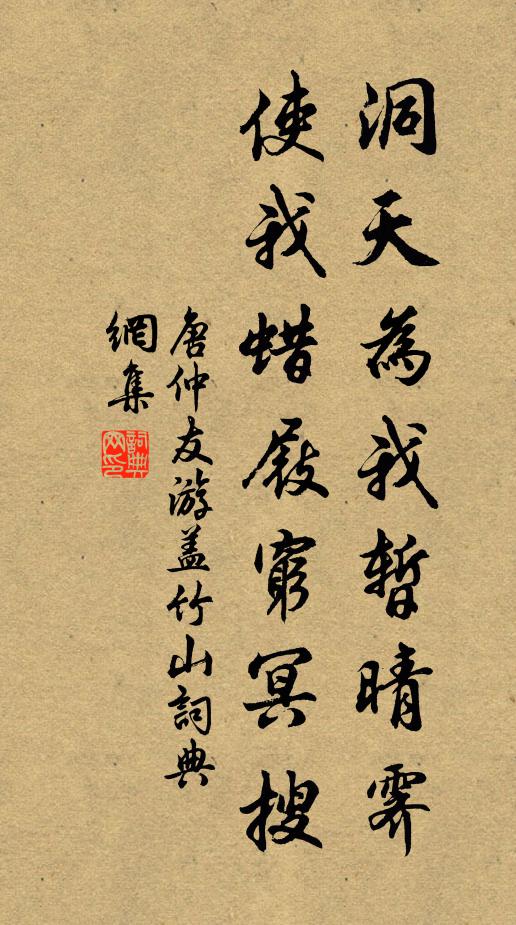 洞天為我暫晴霽
使我蜡屐窮冥搜
唐仲友游盖竹山詞典
網集
詞典網印